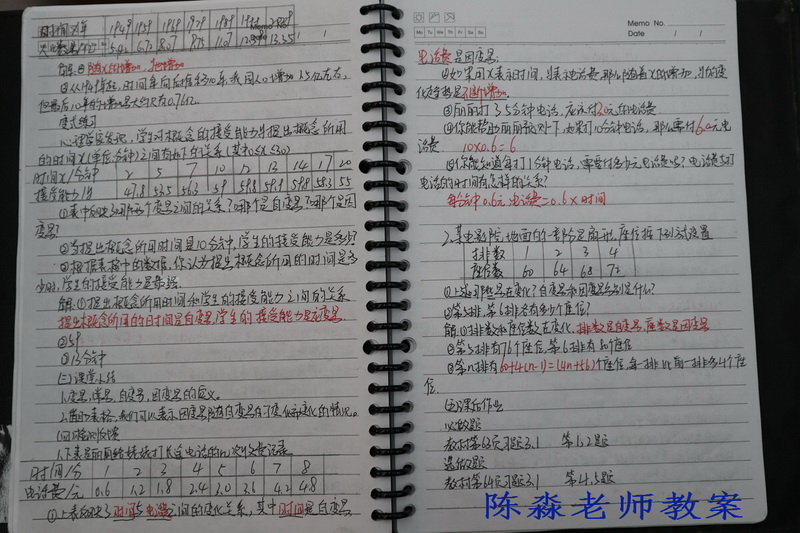 时间x/年 1949 1959 1969 1979 1989 1999
5.42 6.72 8.07 9.75 11.07 12.59
②从1949年起,时间每向后推移10年,我国人口增加1.5亿左右,
但最后10年的增加量大约只有0.76亿.
变式练习
1.心理学家发现,学生对概念的接受能力y与提出概念所用
的时间x(单位:分钟)之间有如下的关系(其中0≤x≤30)
时间x/分钟 2 5 7 10 12 13 14 17 20
接受能力/y 47.8 53.5 56.3 59 59.8 59.9 59.8 58.3 55
①表中反映了哪两个变量之间的关系?哪个是自变量?哪个是因
变量?
②当提出概念所用时间是10分钟,学生的接受能力是多少?
③根据表格中的数据,你认为提出概念所用的时间是多
少时,学生的接受能力是最强.
解:①提出概念所用时间和学生的接受能力之间的关系
提出概念所用的时间是自变量,学生的接受能力是因变量
②59
③13分钟
(三)课堂小结
1.变量,常量,自变量,因变量的定义。
2.借助表格,我们可以表示因变量随自变量的变化而变化的情况。
(四)检测反馈
1.下表是丽丽给姥姥打长途电话的几次收费记录.
时间/分 1 2 3 4 5 6 7 8
电话费/元 0.6 1.2 1.8 2.4 3.0 3.6 4.2 4.8
①上表反映了时间与电话费之间的变化关系,其中时间是自变量
Memo No.
Mo Tu We Th Fr Sa Su
Date / /
电话费是因变量;
②如果用x表示时间,y表示电话费,那么随着x的增加,y的变
化趋势是不断增加.
③丽丽打了5分钟电话,应该付3.0元的电话费
④你能帮助丽丽预测一下,如果打10分钟电话,那么需付6.0元电
话费 10×0.6=6
⑤你能知道每打1分钟电话,需要付多少元电话费吗?电话费与打
电话的时间有怎样的关系?
每分钟0.6元 电话费=0.6×时间
2.某电影院地面的一部分是扇形,座位按下列方式设置
排数 1 2 3 4
座位数 60 64 68 72
①上述哪些量在变化?自变量和因变量分别是什么?
②第5排、第6排各有多少个座位?
解:①排数和座位数在变化,排数是自变量,座位数是因变量
②第5排有76个座位,第6排有80个座位
③第n排有60+4(n-1)=(4n+56)个座位,每一排比前一排多4个座
位.
(五)课后作业
必做题
教材第63页习题3.1 第1.2题
选做题
教材第64页习题3.1 第4.5题
陈淼老师教案